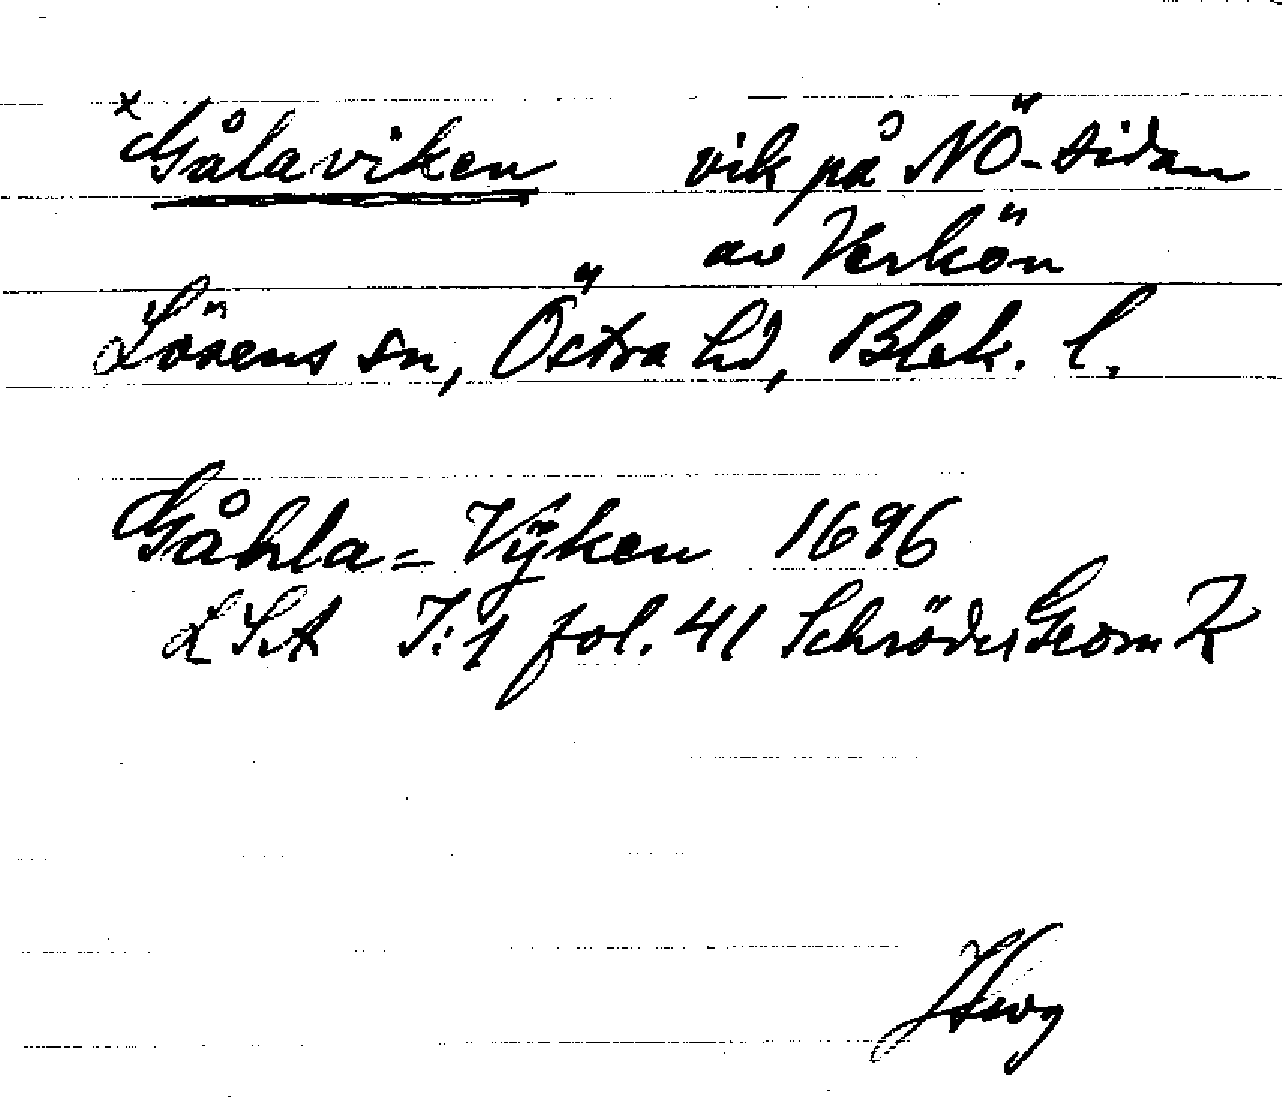 x Gålaviken vik på NÖ-sidan
av Verkön
Lösens sn, Östra hd, Blek. l.
Gåhla=Vÿken 1696
LSA I:1 fol. 41 Schröder Geom K